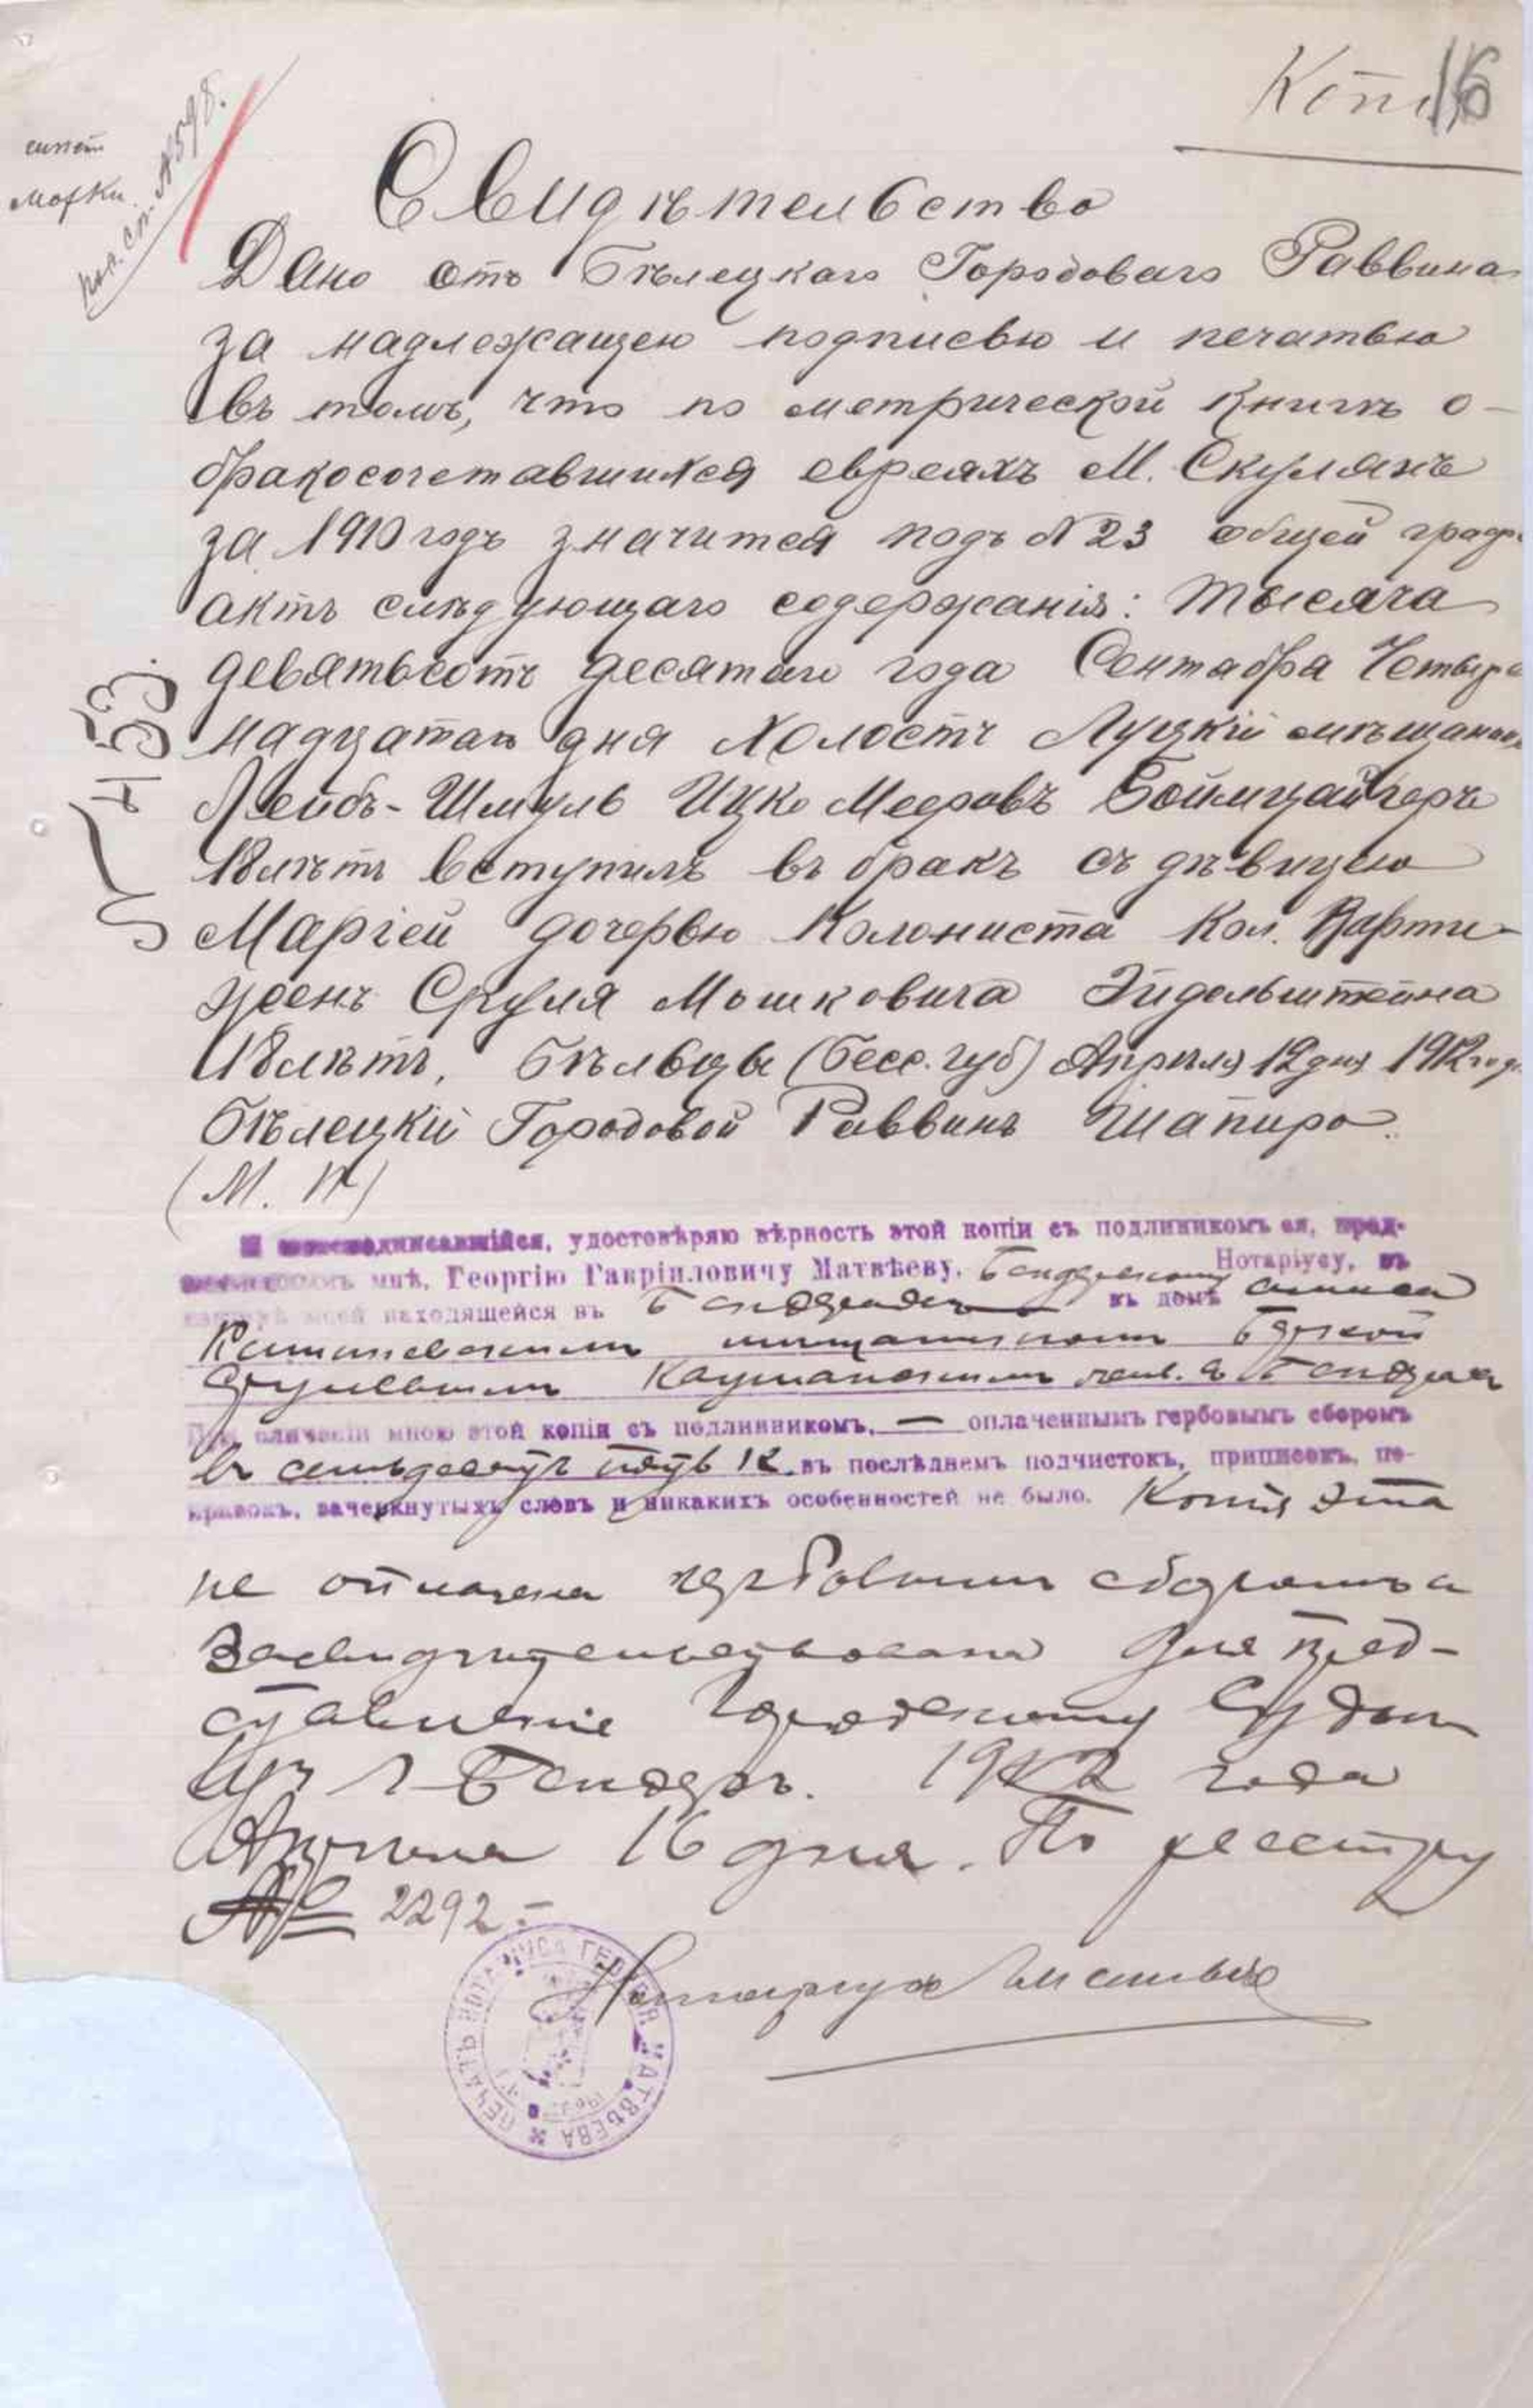 Копія
16
Свидѣтельство
Дано отъ Бѣлецкаго Городоваго Раввина
за надлежащею подписью и печатью
въ томъ, что по метрической книгѣ о
бракосочетавшихся евреяхъ М. Скулянъ
за 1910 годъ значится подъ № 23 общей граф
актъ слѣдующаго содержанія: Тысяча
девятьсотъ десятаго года Сентября Четыр
надцатаго дня холостъ Луцкій мѣщанинъ
Лейбъ-Шмуль Ицко Мееровъ Боймцайгеръ
18 лѣтъ вступилъ въ бракъ съ дѣвицею
Маріей дочерью Колониста Кол. Варти-
женъ Сруля Мошковича Эйдельштейна
18 лѣтъ. Бѣльцы (Бесс. губ) Апрѣля 12 дня 1912 год
Бѣлецкій Городовой Раввинъ Шапиро.
(М. П)
удостовѣряю вѣрность этой копіи съ подлинникомъ ея, пред-
мнѣ, Георгію Гавріиловичу Матвѣеву, Бендерскому Нотаріусу, въ
находящейся въ Бендерахъ въ домѣ
Кишиневскимъ мѣщаниномъ
Каушанскимъ
При сличеніи мною этой копіи съ подлинникомъ, — оплаченнымъ гербовымъ сборомъ
въ семьдесятъ пять к. въ послѣднемъ подчистокъ, приписокъ, по-
правокъ, зачеркнутыхъ словъ и никакихъ особенностей не было. Копія эта
не оплачена гербовымъ сборомъ и
засвидѣтельствована для пред-
ставленія Городскому Судьѣ
г. Бендеръ. 1912 года
Апрѣля 16 дня. По реестру
№ 2292.-
Нотаріусъ Матвѣевъ
ПЕЧАТЬ НОТАРІУСА ГЕОРГІЯ МАТВѢЕВА
марки
№ 598.
453.